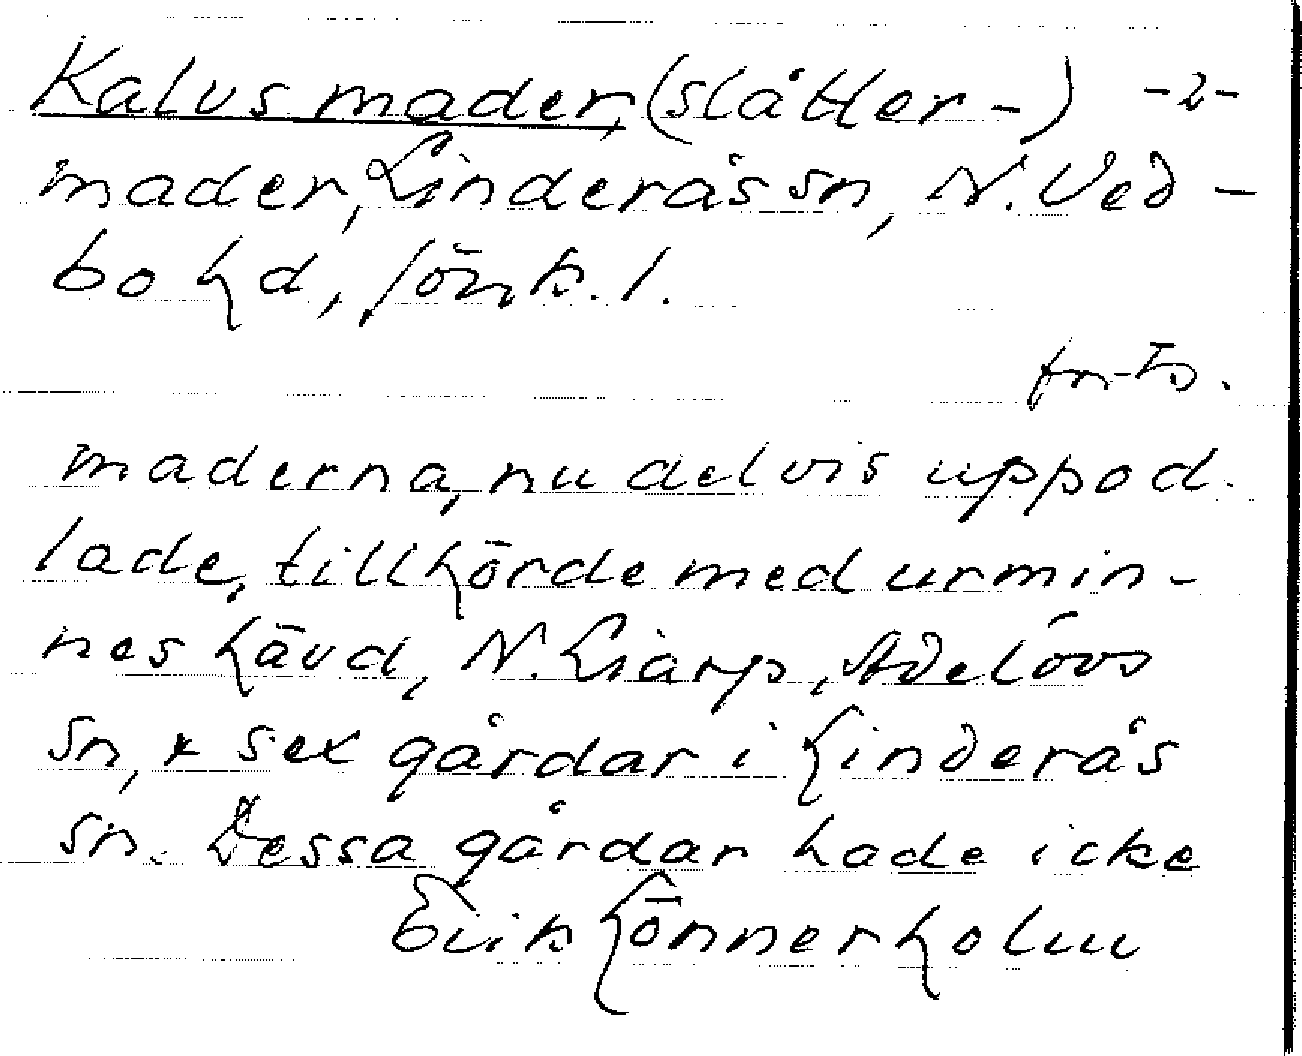 Kalvsmader, (slåtter-) -2-
mader, Linderås sn, N. Ved-
bo hd, Jönk. l.
forts.
maderna, nu delvis uppod-
lade, tillhörde med urmin-
nes hävd, N. Liarp, Adelövs
sn, & sex gårdar i Linderås
sn. Dessa gårdar hade icke
Erik Lönnerholm